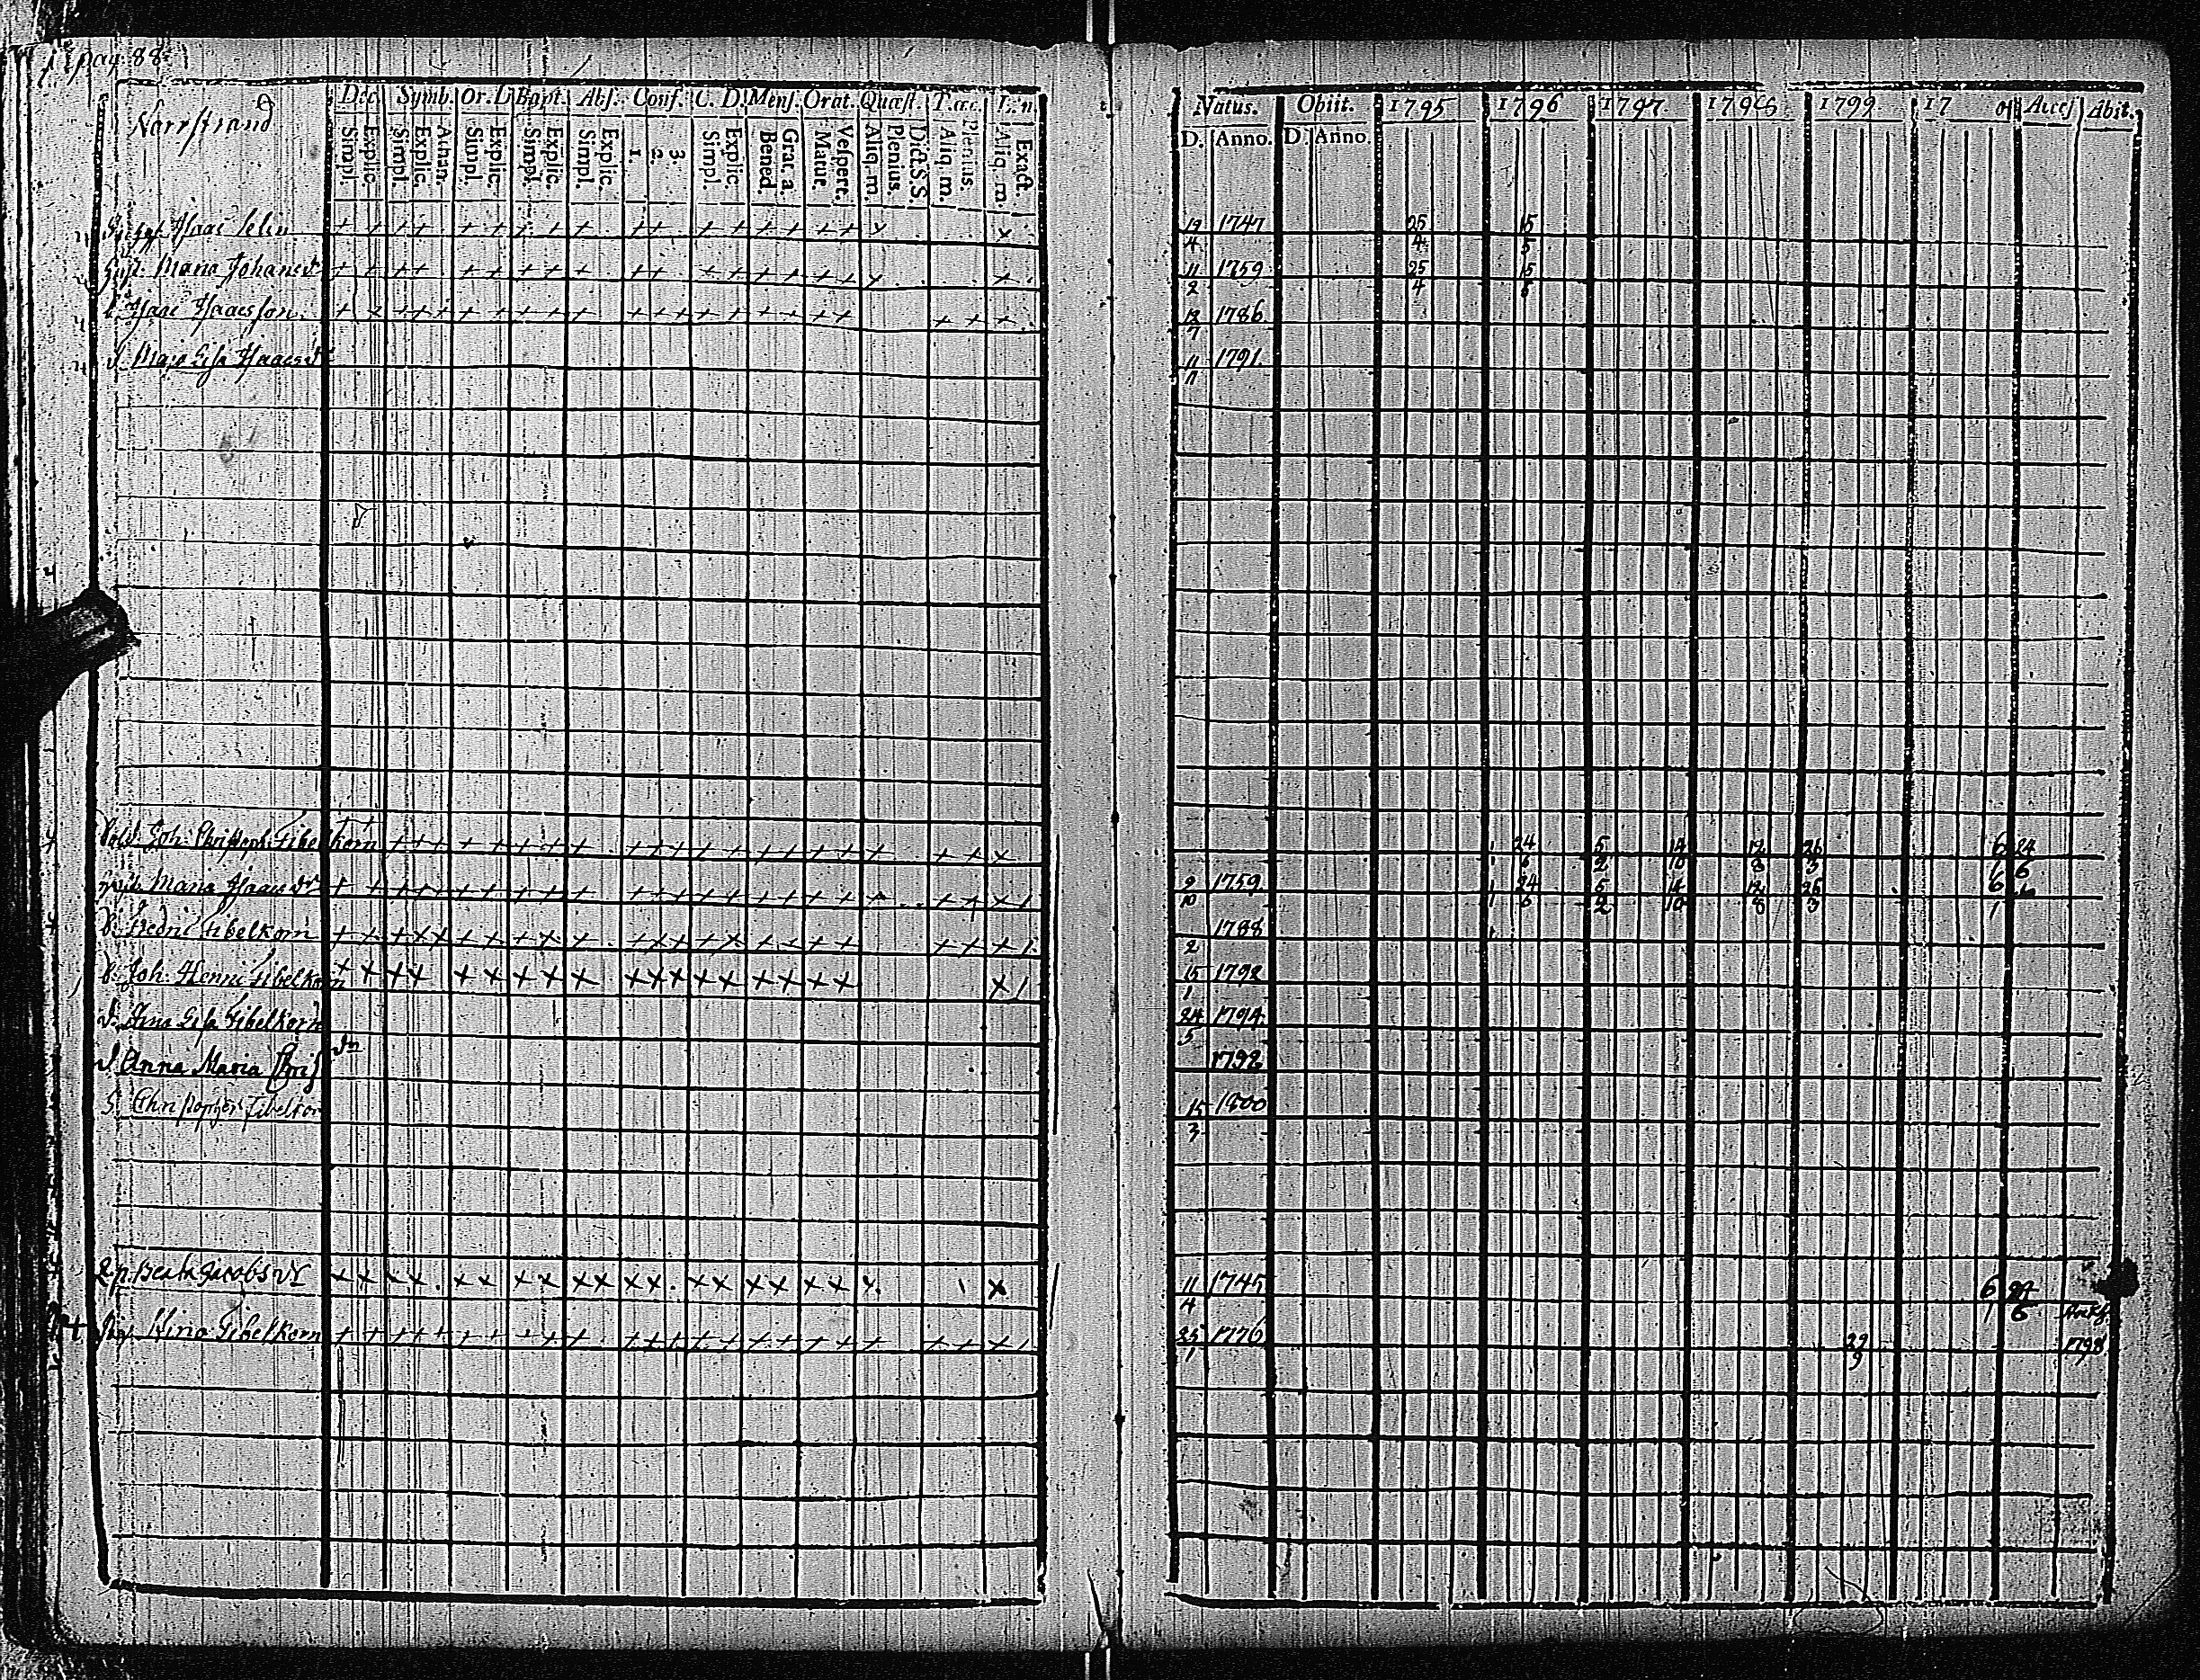 pag: 88
Norrstrand
Dec. Symb. Or. D Bapt. Abs. Conf. C. D. Mens. Orat. Quæst. T. œc. Lin.
Simpl. Explic. Simpl. Explic. Athan. Simpl. Explic. Simpl. Explic. Simpl. Explic. 1. 2. 3. Simpl. Explic. Bened. Grac. a. Matut. Vespert. Aliq. m. Plenius. Dict. S. S. Aliq. m. Plenius. Aliq. m. Exact.
Isaac Selin
Hust. Maria Johansdr
S. Isaac Isaacsson
d. Maja Lisa Isaacsdr
Joh: Christoph Gibelkorn
Hust. Maria Isaacsdr
Fredric Gibelkorn
Joh. Henric Gibelkorn
d. Stina Lisa Gibelkorn
d. Anna Maria Chris dr
S. Christopher Gibelkorn
Beata Jacobsdr
Stina Gibelkorn
Natus. Obiit. 1795 1796 1797 1798 1799 17 Acces Abit.
D. Anno. D. Anno.
19 1747 25 15
4 4 5
11 1759 25 15
2 4 5
12 1786
7
11 1791
11
24 5 14 12 26 6 24
6 2 10 8 3 1 6
9 1759 24 5 14 12 26 6
10 6 2 10 8 3 1
1788
2
15 1792
1
24 1794
5
1792
15 1800
3
11 1745 6 24
4 1 6
25 1776 29 1798
1 9